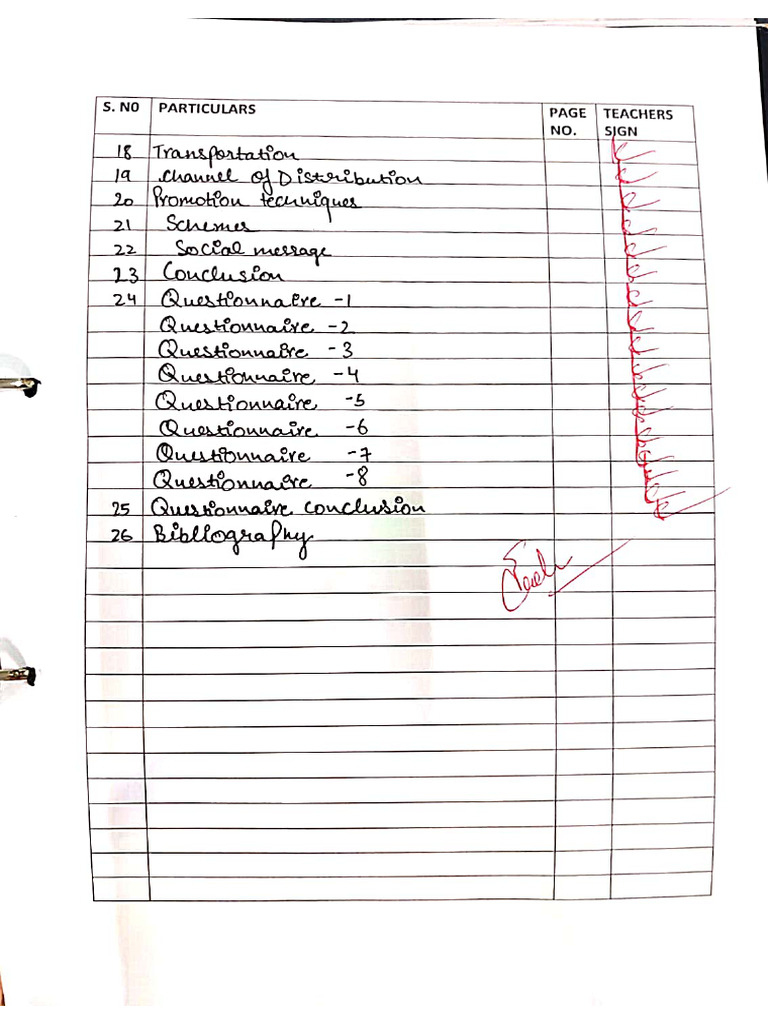 S. NO PARTICULARS PAGE NO. TEACHERS SIGN
18 Transportation
19 Channel of Distribution
20 Promotion techniques
21 Schemes
22 Social message
23 Conclusion
24 Questionnaire -1
Questionnaire -2
Questionnaire -3
Questionnaire -4
Questionnaire -5
Questionnaire -6
Questionnaire -7
Questionnaire -8
25 Questionnaire conclusion
26 Bibliography